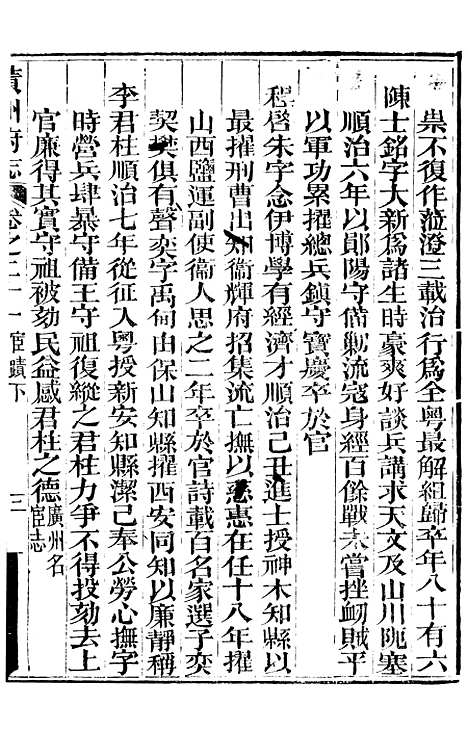 祟不復作蒞澄三載治行爲全粵最解組歸卒年八十有六
陳士銘字大新爲諸生時豪爽好談兵講求天文及山川阨塞
順治六年以鄖陽守備勦流寇身經百餘戰未嘗挫衂賊平
以軍功累擢總兵鎮守寶慶卒於官
程啓朱字念伊博學有經濟才順治己丑進士授神木知縣以
最擢刑曹出知衞輝府招集流亡撫以慈惠在任十八年擢
山西鹽運副使衞人思之二年卒於官詩載百名家選子奕
契奘俱有聲奕字禹甸由保山知縣擢西安同知以廉靜稱
李君柱順治七年從征入粵授新安知縣潔己奉公勞心撫字
時營兵肆暴守備王守祖復縱之君柱力爭不得投劾去上
官廉得其實守祖被劾民益感君柱之德廣州名宦志
黃州府志 卷之二十一 宦蹟下 三